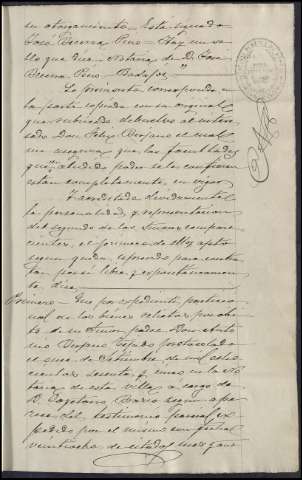 su otorgamiento = Está signado
José Becerra Pino = Hay un se-
llo que dice Notaría de D. José
Becerra Pino = Badajoz."
Lo preinserto corresponde a
la parte copiada con su original
que rubricado devuelvo al intere-
sado Don Felix Dorjano el cual
me asegura que las facultades
que aludido poder se le confieren
están completamente en vigor
Y acreditada debidamente
la personalidad, y representacion
del segundo de los Señores compare-
cientes, el primero de ellos apto
segun queda espresado para contra-
tar pues libre y espontáneamente
dice
Primero = Que por espediente particio-
nal de los bienes relictos por óbi-
to de su Señor padre Don Anto-
nio Dorjano Tejada protocolado
el once de Setiembre de mil ocho-
cientos sesenta y cinco en la No-
taría de esta villa a cargo de
D. Cayetano segun apa-
rece del testimonio parcial ex-
pedido por el mismo con fecha
veintiocho de citados mes y año